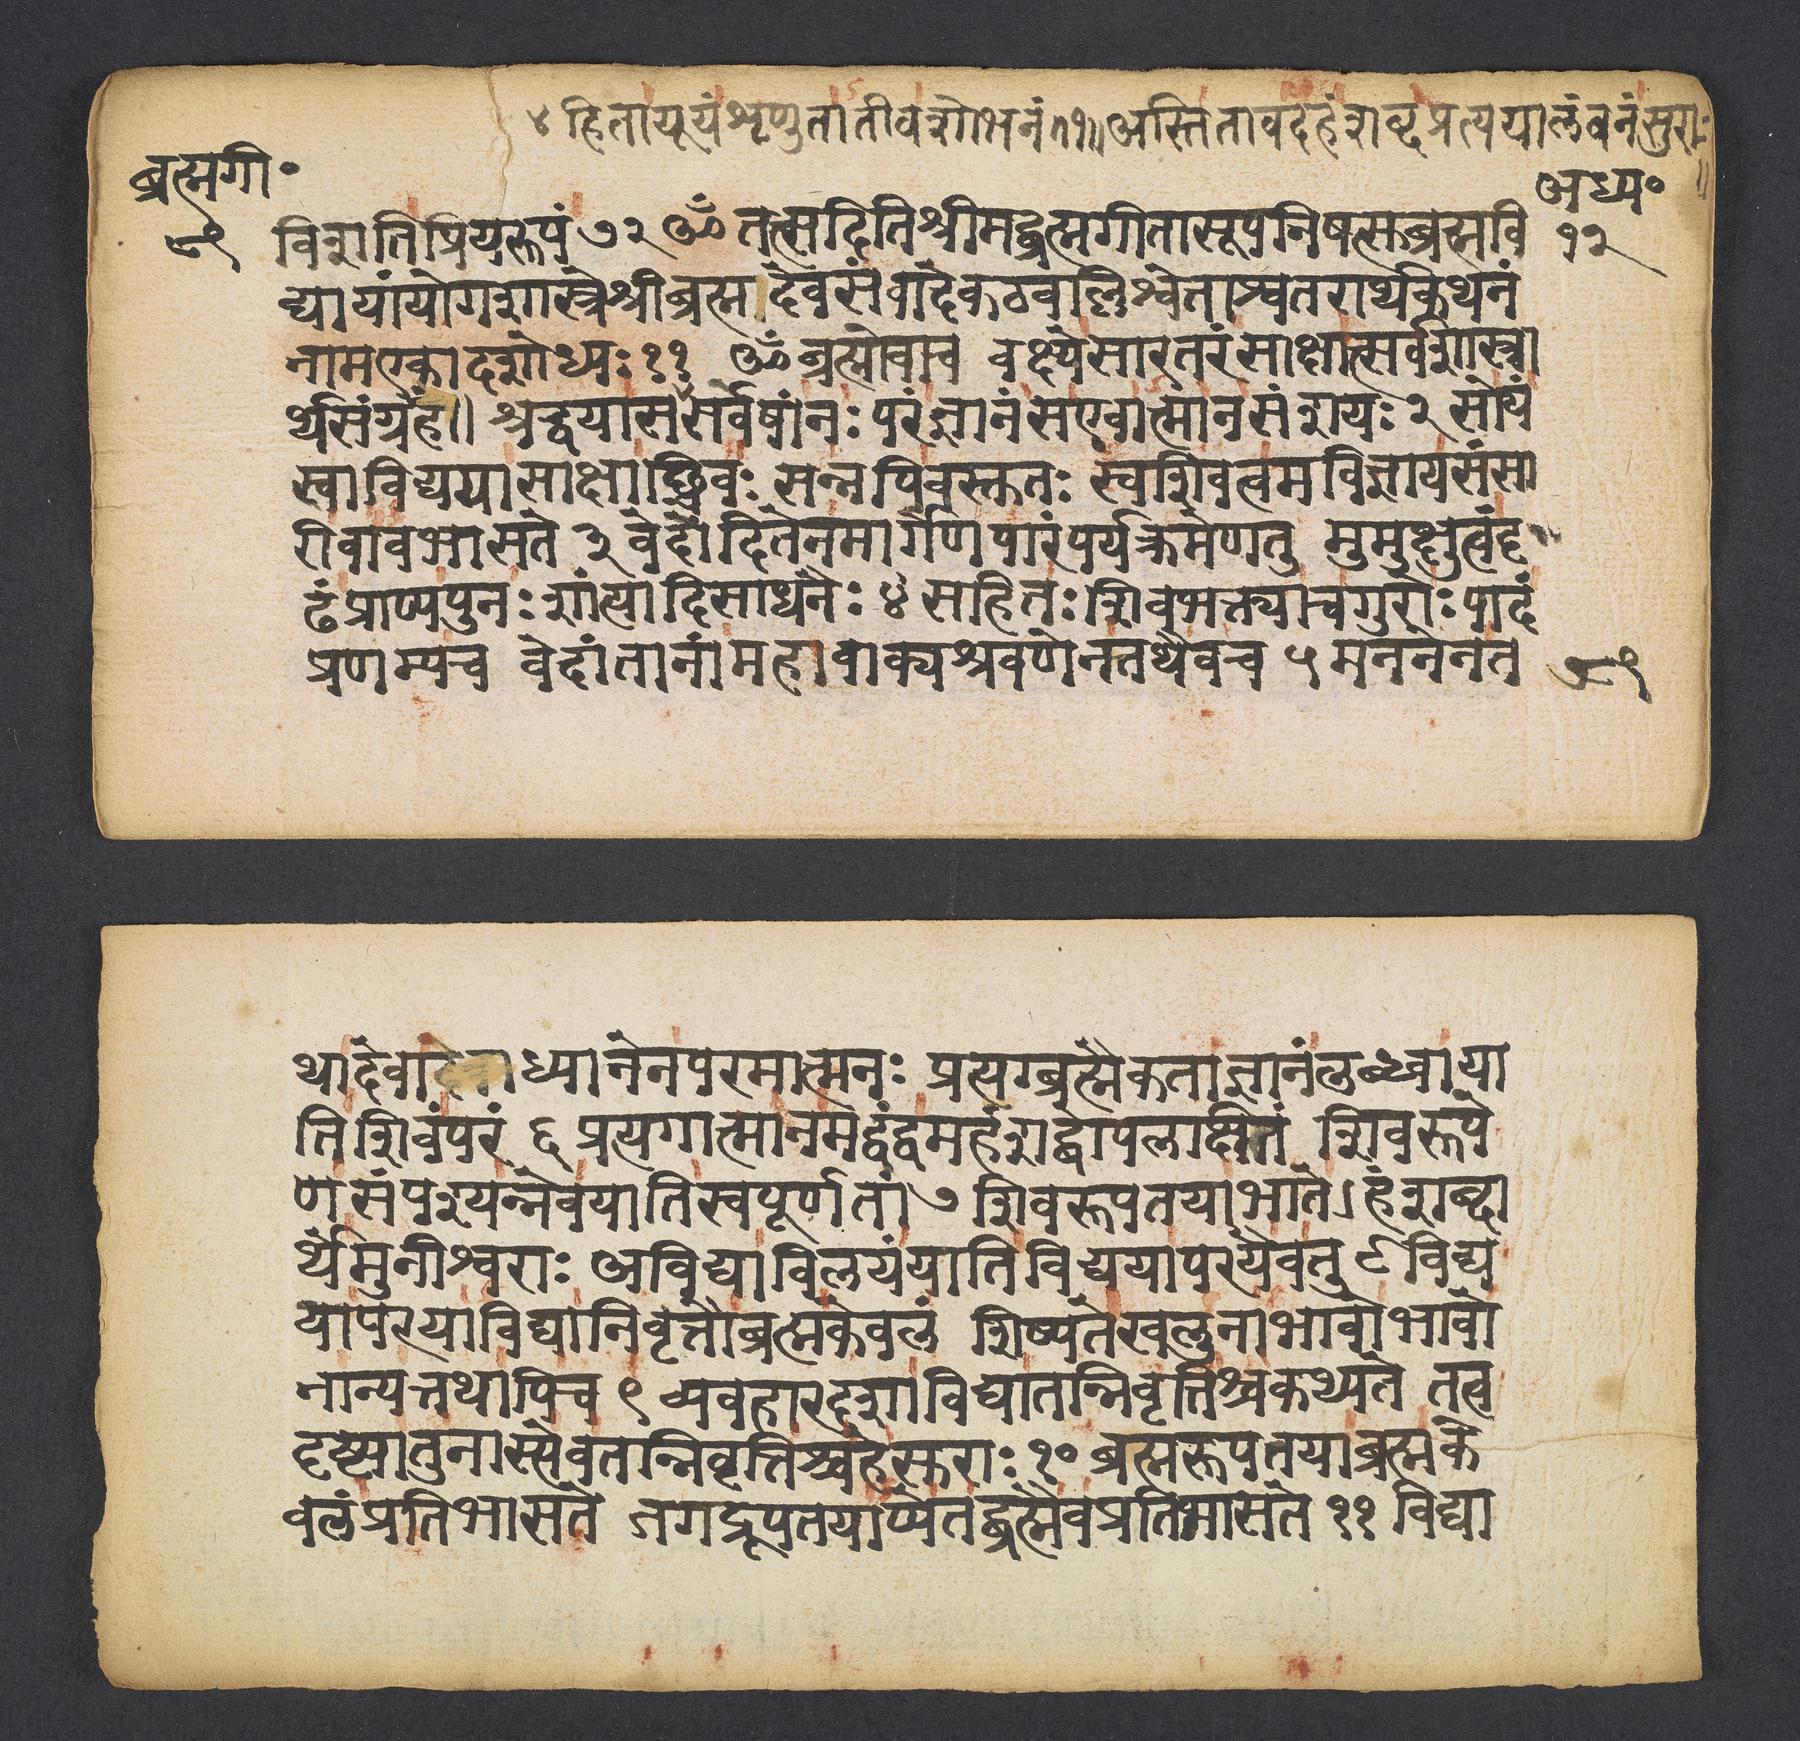 ४ हितायूयंश्रृणुतातीवशोभनं ॥१॥ अस्तितावदहंशब्दप्रत्ययालंबनंसुराः॥
ब्रह्मगी॰
अध्य॰
१२
विशतिप्रियरूपं ७२ ॐ तत्सदितिश्रीमद्ब्रह्मगीतासूपनिषत्सुब्रह्मवि
द्यायांयोगशास्त्रेश्रीब्रह्मादेवसंवादेकठवल्लिश्वेताश्वतरार्थकथनं
नामएकादशोध्यः ११ ॐ ब्रह्मोवाच वक्ष्येसारतरंसाक्षात्सर्वशास्त्रा
र्थसंग्रहं॥ श्रद्धयास सर्वेषांनः परंज्ञानंसएवात्मानसंशयः २ सोयं
स्वाविद्ययासाक्षाच्छिवः सन्नपिवस्तुतः स्वशिवत्वमविज्ञायसंसा
रीवावभासते ३ वेदोदितेनमार्गेणपारंपर्यक्रमेणतु मुमुक्षुत्वंदृ
ढंप्राप्यपुनः शांत्यादिसाधनैः ४ सहितः शिवभक्त्याचगुरोः पादं
प्रणम्यच वेदांतानांमहावाक्यश्रवणेनतथैवच ५ मननेनत
थादेवा ध्यानेनपरमात्मनः प्रत्यग्ब्रह्मैकताज्ञानंलब्ध्वाया
तिशिवंपरं ६ प्रत्यगात्मानमद्वंद्वमहंशब्दोपलक्षितं शिवरूपे
णसंपश्यन्नेवयातिस्वपूर्णतां ७ शिवरूपतयाभातेऽहंशब्दा
र्थेमुनीश्वराः अविद्याविलयंयातिविद्ययापरयैवतु ८ विद्य
यापरयाविद्यानिवृत्तौब्रह्मकेवलं शिष्यतेखलुनाभावोभावो
नान्यत्तथापिच ९ व्यवहारदृशाविद्यातन्निवृत्तिश्चकथ्यते तत्व
दृष्ट्यातुनास्त्येवतन्निवृत्तिश्चहेसुराः १० ब्रह्मरूपतयाब्रह्मके
वलंप्रतिभासते जगद्रूपतयाप्येतद्ब्रह्मैवप्रतिभासते ११ विद्या